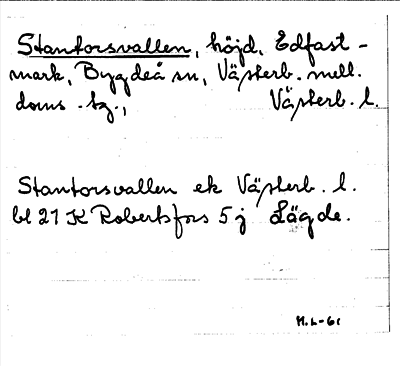 Stantorsvallen, höjd, Edfast-
mark, Bygdeå sn, Västerb. mell.
doms. hg., Västerb. l.
Stantorsvallen ek Västerb. l.
bl 21 K Robertsfors 5 j Lägde.
M.L-61